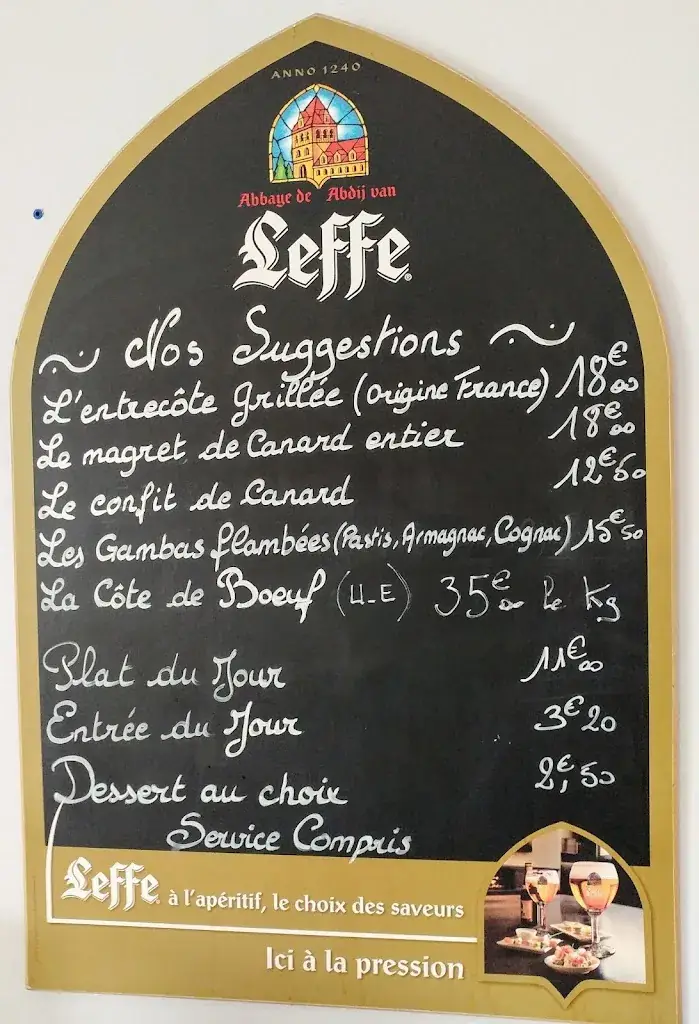 ANNO 1240
Abbaye de Abdij van
Leffe®
~ Nos Suggestions ~
L'entrecôte Grillée (Origine France) 18€00
Le magret de Canard entier 18€00
Le confit de Canard 12€50
Les Gambas flambées (Pastis, Armagnac, Cognac) 15€50
La Côte de Boeuf (U-E) 35€00 le kg
Plat du Jour 11€00
Entrée du Jour 3€20
Dessert au choix 2,€50
Service Compris
Leffe® à l'apéritif, le choix des saveurs
Ici à la pression